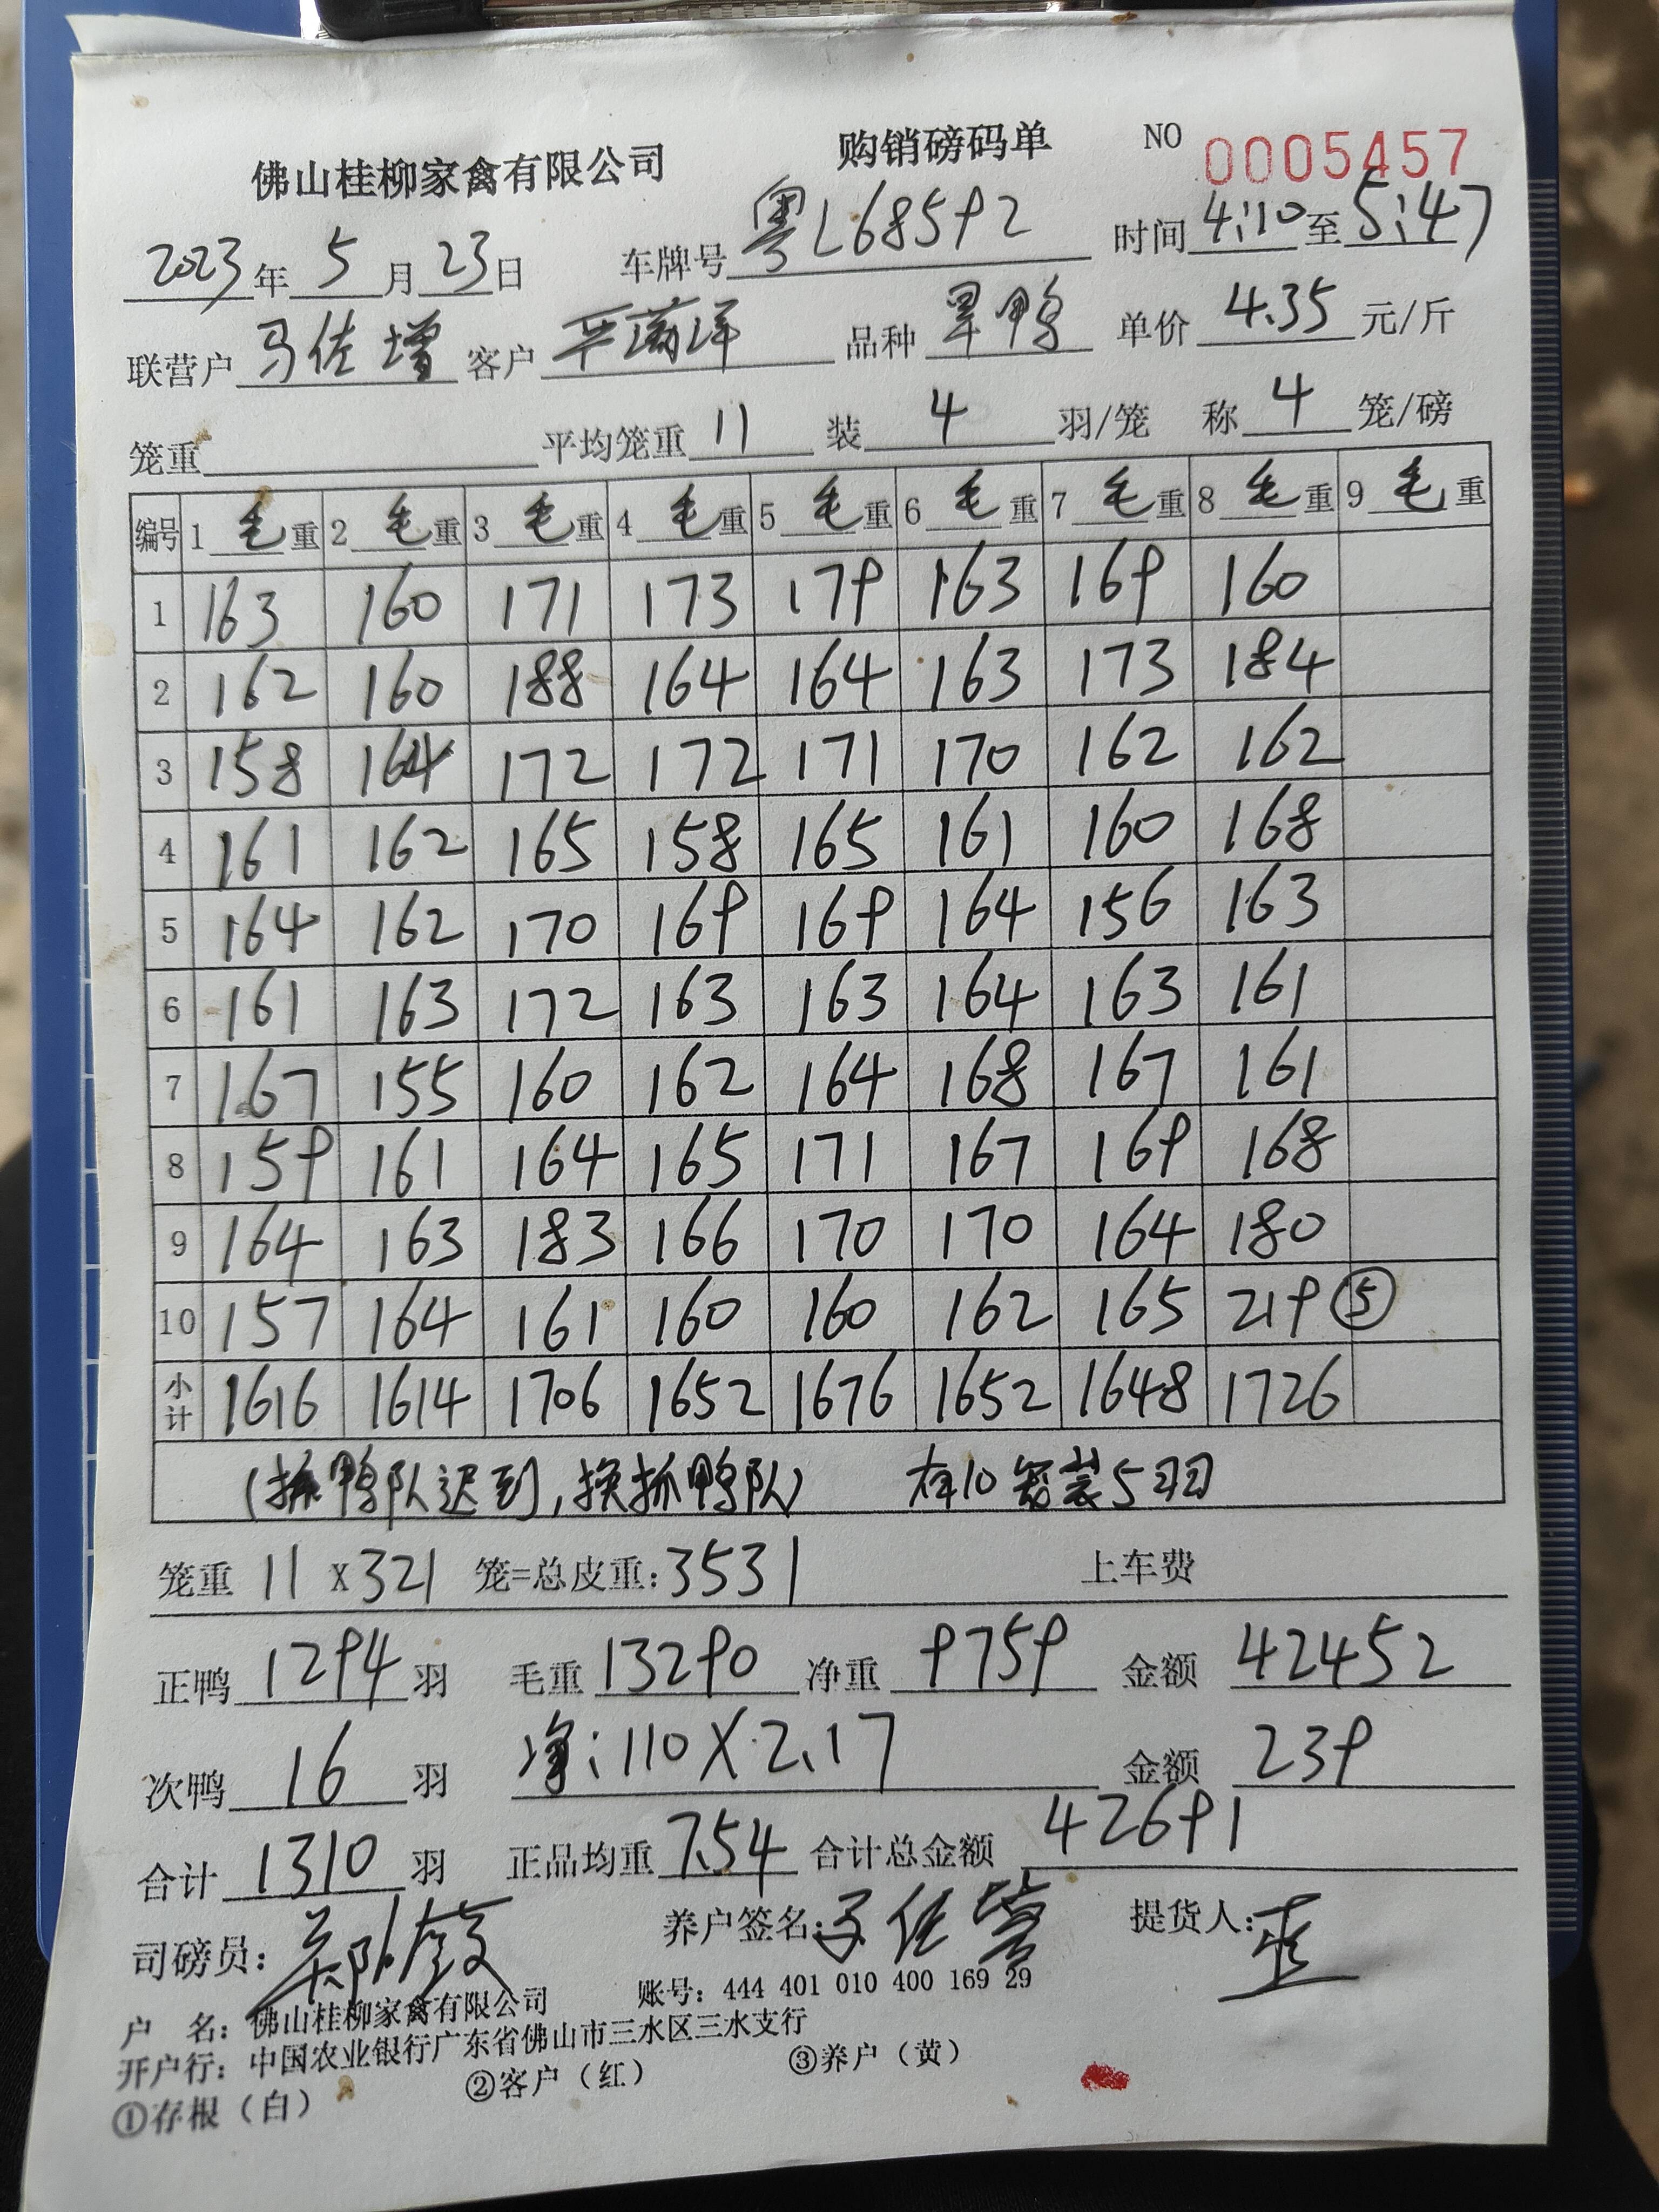 佛山桂柳家禽有限公司 购销磅码单 NO 0005457
2023年5月23日 车牌号 粤L68592 时间 4:10至5:47
联营户 马佐增 客户 品种 旱鸭 单价 4.35 元/斤
笼重 平均笼重 11 装 4 羽/笼 称 4 笼/磅
编号 1 毛重 2 毛重 3 毛重 4 毛重 5 毛重 6 毛重 7 毛重 8 毛重 9 毛重
1 163 160 171 173 179 163 169 160
2 162 160 188 164 164 163 173 184
3 158 164 172 172 171 170 162 162
4 161 162 165 158 165 161 160 168
5 164 162 170 169 169 164 156 163
6 161 163 172 163 163 164 163 161
7 167 155 160 162 164 168 167 161
8 159 161 164 165 171 167 169 168
9 164 163 183 166 170 170 164 180
10 157 164 161 160 160 162 165 219 ⑤
小计 1616 1614 1706 1652 1676 1652 1648 1726
(抓鸭队迟到,换抓鸭队) 有10笼装5羽
笼重 11 x 321 笼=总皮重:3531 上车费
正鸭 1294 羽 毛重 13290 净重 9759 金额 42452
次鸭 16 羽 净:110X2.17 金额 239
合计 1310 羽 正品均重 7.54 合计总金额 42691
司磅员: 养户签名: 提货人:
户 名:佛山桂柳家禽有限公司 账号:444 401 010 400 169 29
开户行:中国农业银行广东省佛山市三水区三水支行
①存根(白) ②客户(红) ③养户(黄)